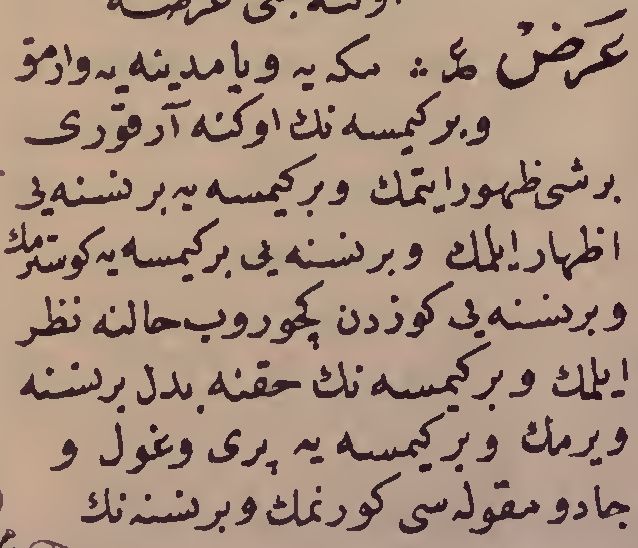 عَرَضْ ع ؞ مكه يه ويا مدينه يه وارمق
وبر كيمسه نك اوكنه آرقورى
برشى ظهور ايتمك وبر كيمسه يه بر نسنه يى
اظهار ايلمك وبر نسنه يى بر كيمسه يه كوسترمك
وبر نسنه يى كوزدن كچوروب حالنه نظر
ايلمك وبر كيمسه نك حقنه بدل بر نسنه
ويرمك وبر كيمسه يه پرى وغول و
جادو مقوله سى كورنمك وبر نسنه نك